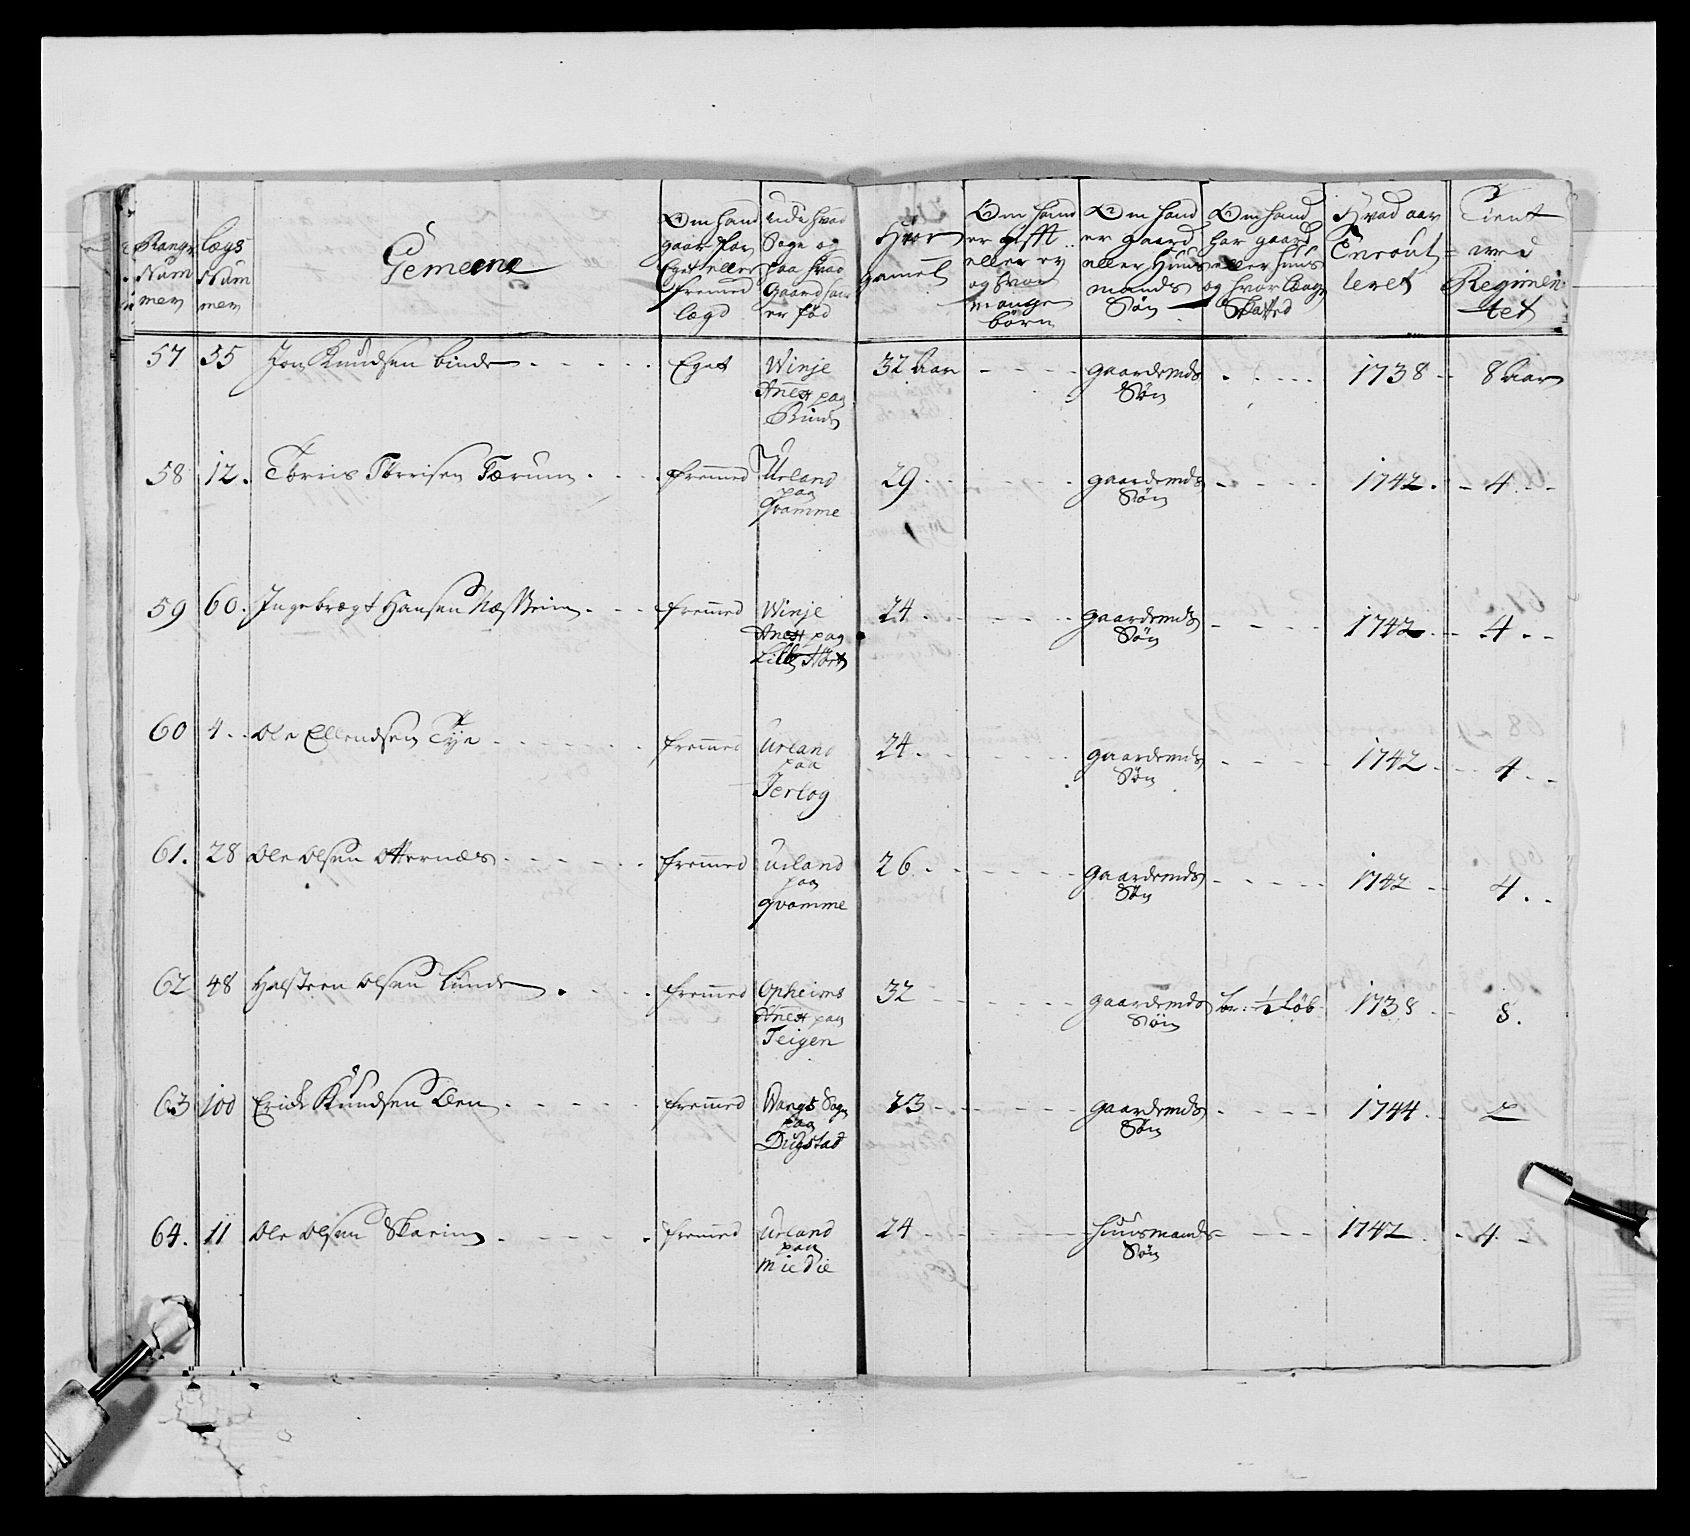 Rang Num mer
lægs Num mer
Gemeene
Om hand gaar for Eget eller fremed lægd
Udi hvad Sogn og paa hvad Gaard hand er fød
Hvor gamel
Om hand er gifft eller ey og hvor mange børn
Om hand er gaard eller Huus mands Søn
Om hand har gaard eller huus og hvor langt Skatted
Hvad aar Enroul leret
Tient ved Regimen tet
57 35 Jon Knudsen binde Eget Winje Anex paa Binde 32 Aar gaardemds Søn 1738 8 Aar
58 12. Torris Torrisen Færum fremmed Urland paa Qvamme 29 gaardemds Søn 1742. 4
59 60. Ingebragt Hansen Næssheim fremmed Winje Anex paa Lille Hørt 24 gaardemds Søn 1742 4
60 4 Ole Ellendsen Tye fremmed Urland paa Jerlog 24 gaardemds Søn 1742 4
61. 28 Ole Olsen Otternæs fremmed Urland paa Qvamme 26 gaardemds Søn 1742 4
62 48 Halsteen Olsen Lunde fremmed Opheims Anex paa Teigen 32 gaardemds Søn br: 1/2 Løb 1738 8.
63 100 Erich Knudsen Øen fremmed Wangs Sogn paa Dugstad 23 gaardemds Søn 1744 2
64. 11 Ole Olsen Skarim fremmed Urland paa Miedie 24 Huusmands Søn 1742 4